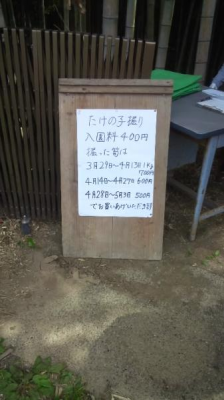 たけの子掘り
入園料400円
掘った筍は
3月29日〜4月13日1kg
700円
4月14日〜4月27日600円
4月28日〜5月9日500円
でお買いあげいただきます